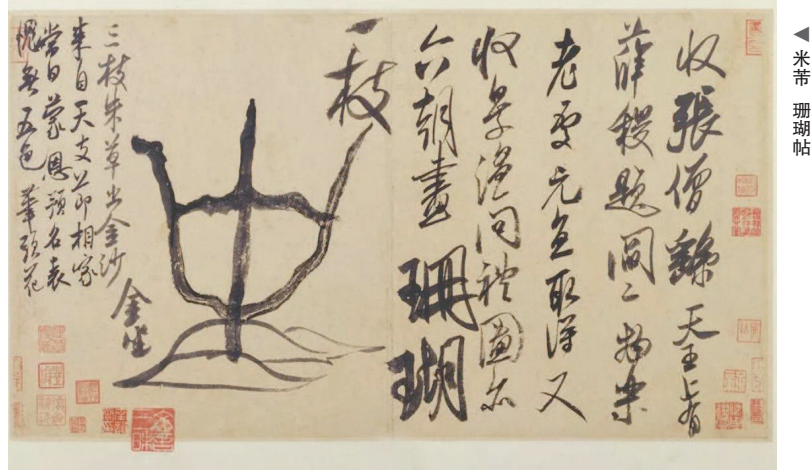 米芾 珊瑚帖
收張僧繇天王上有
薛稷題閻二物樂
老處元直取得又
收景溫問禮圖亦
六朝畫珊瑚
一枝
金坐
三枝朱草出金沙
來自天支節相家
當日蒙恩預名表
愧無五色筆頭花